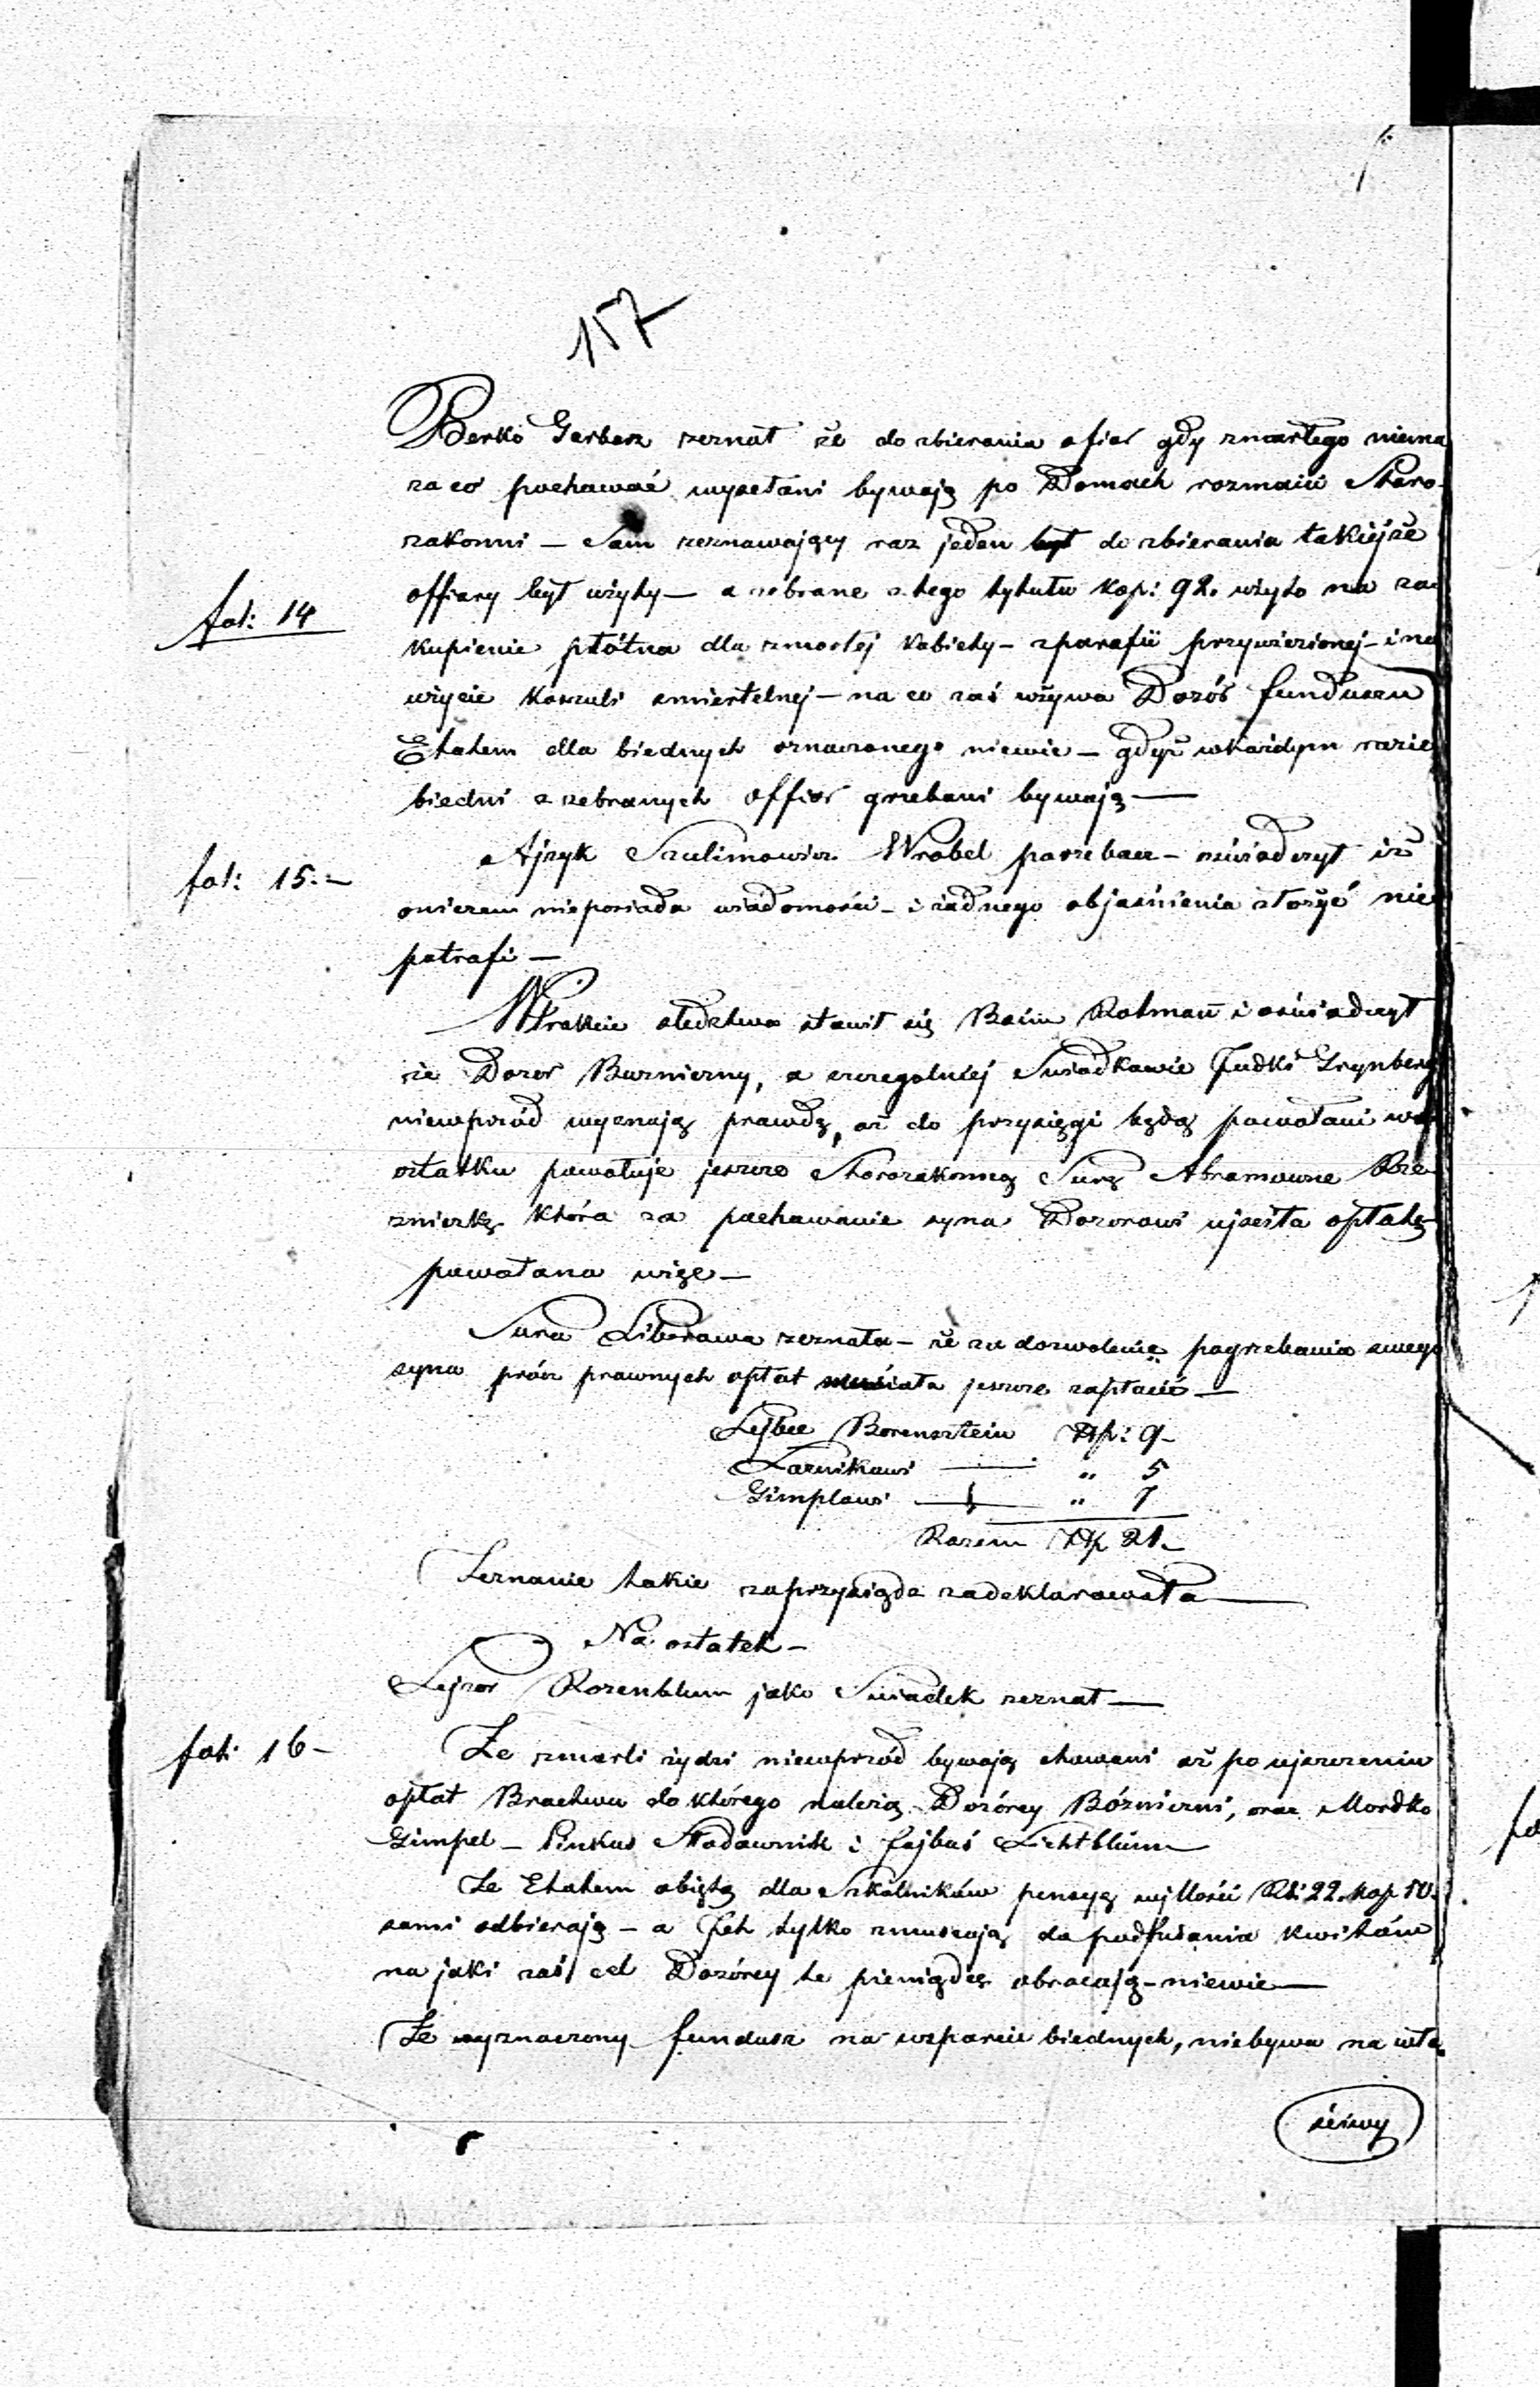 157
Berko Garbarz zeznał że do zbierania ofiar gdy zmarłego niema
za co pochować wysełani bywają po Domach rozmaici Staro-
zakonni — Sam zeznawający raz jeden był do zbierania takiejże
fol: 14
offiary był użyty — a zebrane z tego tytułu kop: 92. użyto na za-
kupienie płótna dla zmarłej kobiety — z parafii przywiezionej — i na
użycie koszuli śmiertelnej — na co zaś używa Dozór funduszu
Etatem dla biednych oznaczonego niewie — gdyż wkażdym razie
biedni z zebranych offiar grzebani bywają —
Ajzyk Szulimowicz Wrobel parzebacz — oświadczył iż
fol: 15. —
oniczem nieposiada wiadomości — i żadnego objaśnienia złożyć nie
potrafi —
Wtrakcie śledztwa stawił się Baim Rotmań i oświadczył
że Dozor Buzniczny, a szczegolniej Swiadkowie Judko Grynberg
niewprzód wyznają prawdę, aż do przysięgi będą powołani w
ostatku powołuje jeszcze Starozakonną Surę Abramowne
która za pochowanie syna Dozorowi uiściła opłatę
powołana więc —
Sura Liberowa zeznała — że za dozwolenie pogrzebania swego
syna prócz prawnych opłat musiała jeszcze zapłacić —
Lejbce Borensztein Złp: 9 —
Łaznikowi — " 5
Gimplowi — " 7
Razem Złp 21. —
Zeznanie takie zaprzysiądz zadeklarowała —
Na ostatek —
Lejzor Rozenblum jako Swiadek zeznał —
fol: 16 —
Że zmarli żydzi niewprzód bywają chowani aż po ujszczeniu
opłat Bractwu do którego należą Dozórcy Bóżniczni, oraz Mordko
Gimpel — Pinkus Stodawnik i fajbuś Lichtblum
Że Etatem objętą dla Szkolników pensyą wjlłości Rb: 22. kop 50.
sami odbierają — a Jch tylko zmuszają do podpisania kwitów
na jaki zaś cel Dozórcy te pieniądze obracają — niewie —
Że wyznaczony fundusz na wsparcie biednych, niebywa na wła-
ściwy